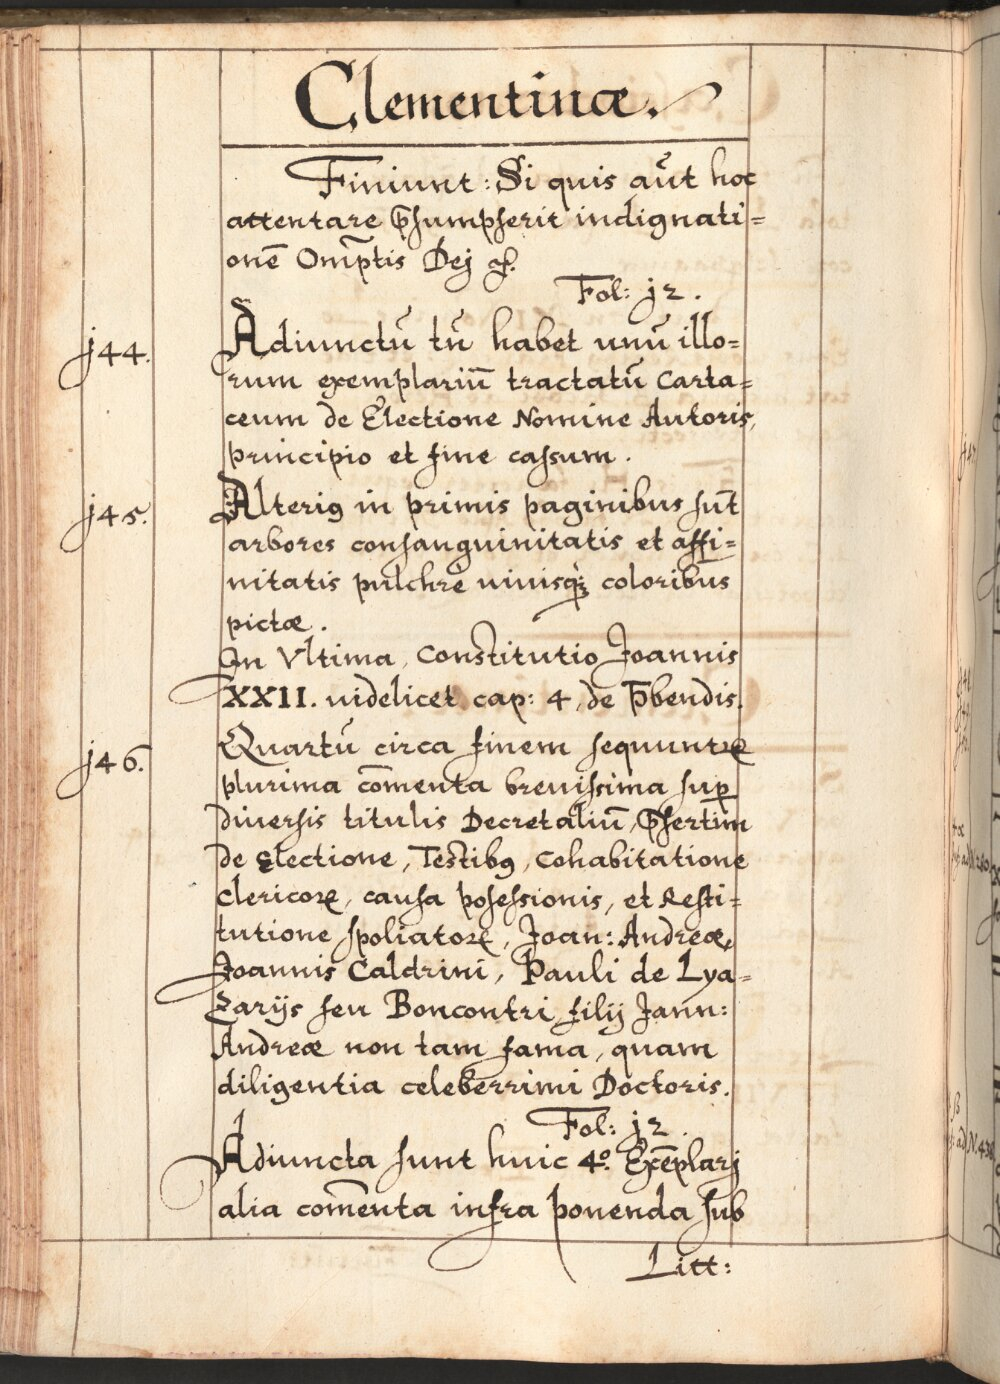 Clementinæ.
Finiunt: Si quis aūt hoc
attentare p̄sumpserit indignati=
onē Omp̄tis Dej
Fol: j2.
j44.
Adiunctū tn̄ habet unū illo=
rum exemplariū tractatū Carta=
ceum de Electione Nomine Autoris,
principio et fine cassum.
j45.
Alteriꝯ in primis paginibus sūt
arbores consanguinitatis et affi=
nitatis pulchrè uiuisqꝫ coloribus
pictæ.
In Vltima, Constitutio Joannis
XXII. uidelicet cap: 4, de p̄bendis.
j46.
Quartū circa finem sequuntꝛ
plurima com̄enta breuissima suꝑ
diuersis titulis Decretaliū, p̄sertim
de Electione, Testibꝯ, Cohabitatione
Clericoꝝ, causa posessionis, et Resti=
tutione spoliatoꝝ, Joan: Andreæ,
Joannis Caldrini, Pauli de Lya=
zarijs seu Boncontri filij Jann:
Andreæ non tam fama, quam
diligentia celeberrimi Doctoris.
Fol: j2.
Adiuncta sunt huic 4º. Exēplarj
alia com̄enta infra ponenda sub
Litt: